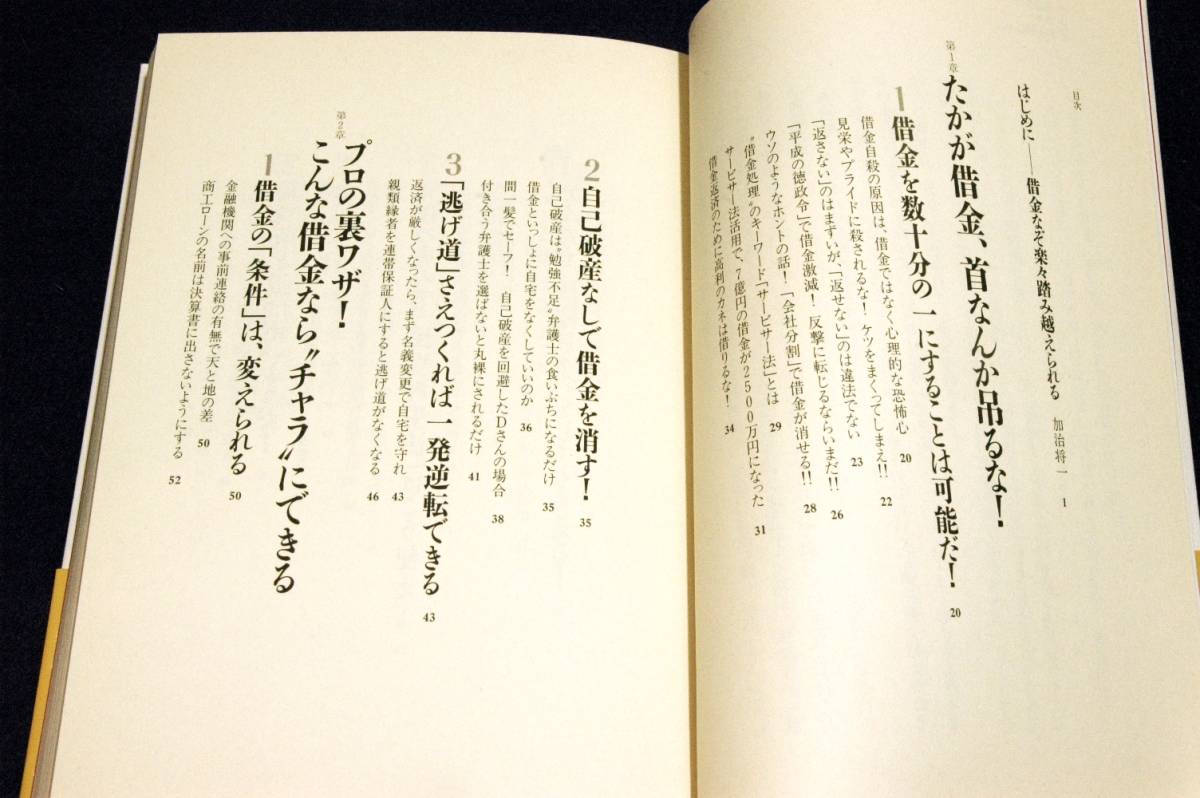 目次
はじめに——借金なぞ楽々踏み越えられる　加治将一　1
第1章
たかが借金、首なんか吊るな！
1 借金を数十分の一にすることは可能だ！　20
借金自殺の原因は、借金ではなく心理的な恐怖心　20
見栄やプライドに殺されるな！　ケツをまくってしまえ!!　22
「返さない」のはまずいが、「返せない」のは違法でない　23
「平成の徳政令」で借金激減！　反撃に転じるならいまだ!!　26
ウソのようなホントの話！「会社分割」で借金が消せる!!　28
〝借金処理〟のキーワード「サービサー法」とは　29
サービサー法活用で、7億円の借金が2500万円になった　31
借金返済のために高利のカネは借りるな！　34
2 自己破産なしで借金を消す！　35
自己破産は〝勉強不足〟弁護士の食いぶちになるだけ　35
借金といっしょに自宅をなくしていいのか　36
間一髪でセーフ！　自己破産を回避したDさんの場合　38
付き合う弁護士を選ばないと丸裸にされるだけ　41
3 「逃げ道」さえつくれば一発逆転できる　43
返済が厳しくなったら、まず名義変更で自宅を守れ　43
親類縁者を連帯保証人にすると逃げ道がなくなる　46
第2章
プロの裏ワザ！
こんな借金なら〝チャラ〟にできる
1 借金の「条件」は、変えられる　50
金融機関への事前連絡の有無で天と地の差　50
商工ローンの名前は決算書に出さないようにする　52